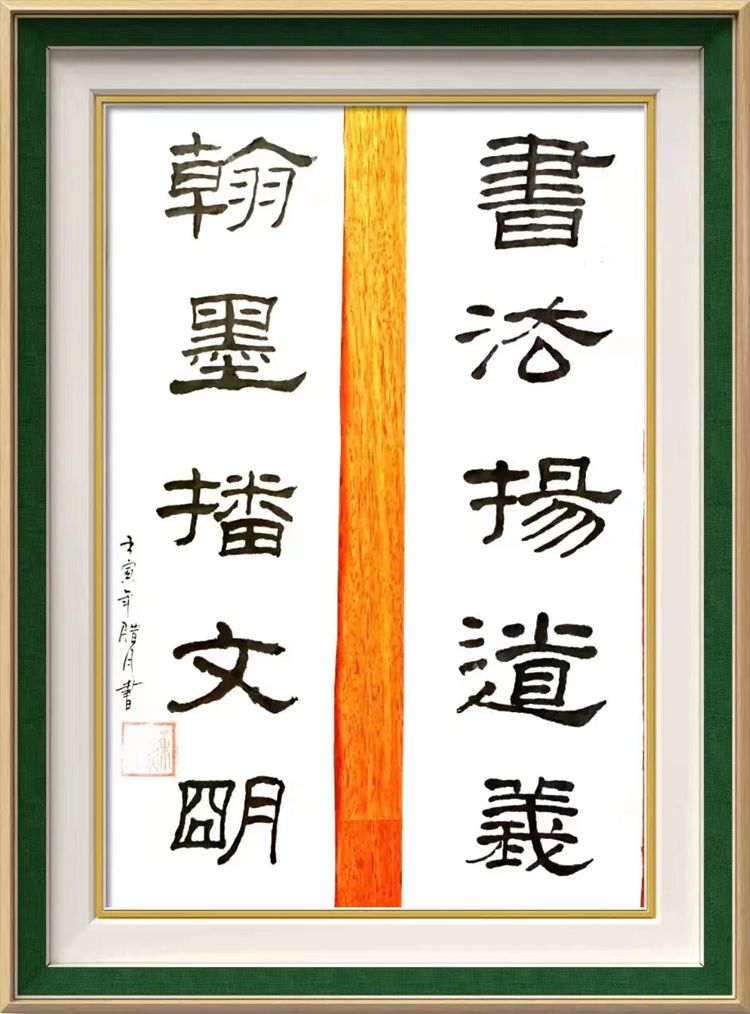 書法揚道義
翰墨播文朙
壬寅年腊月書